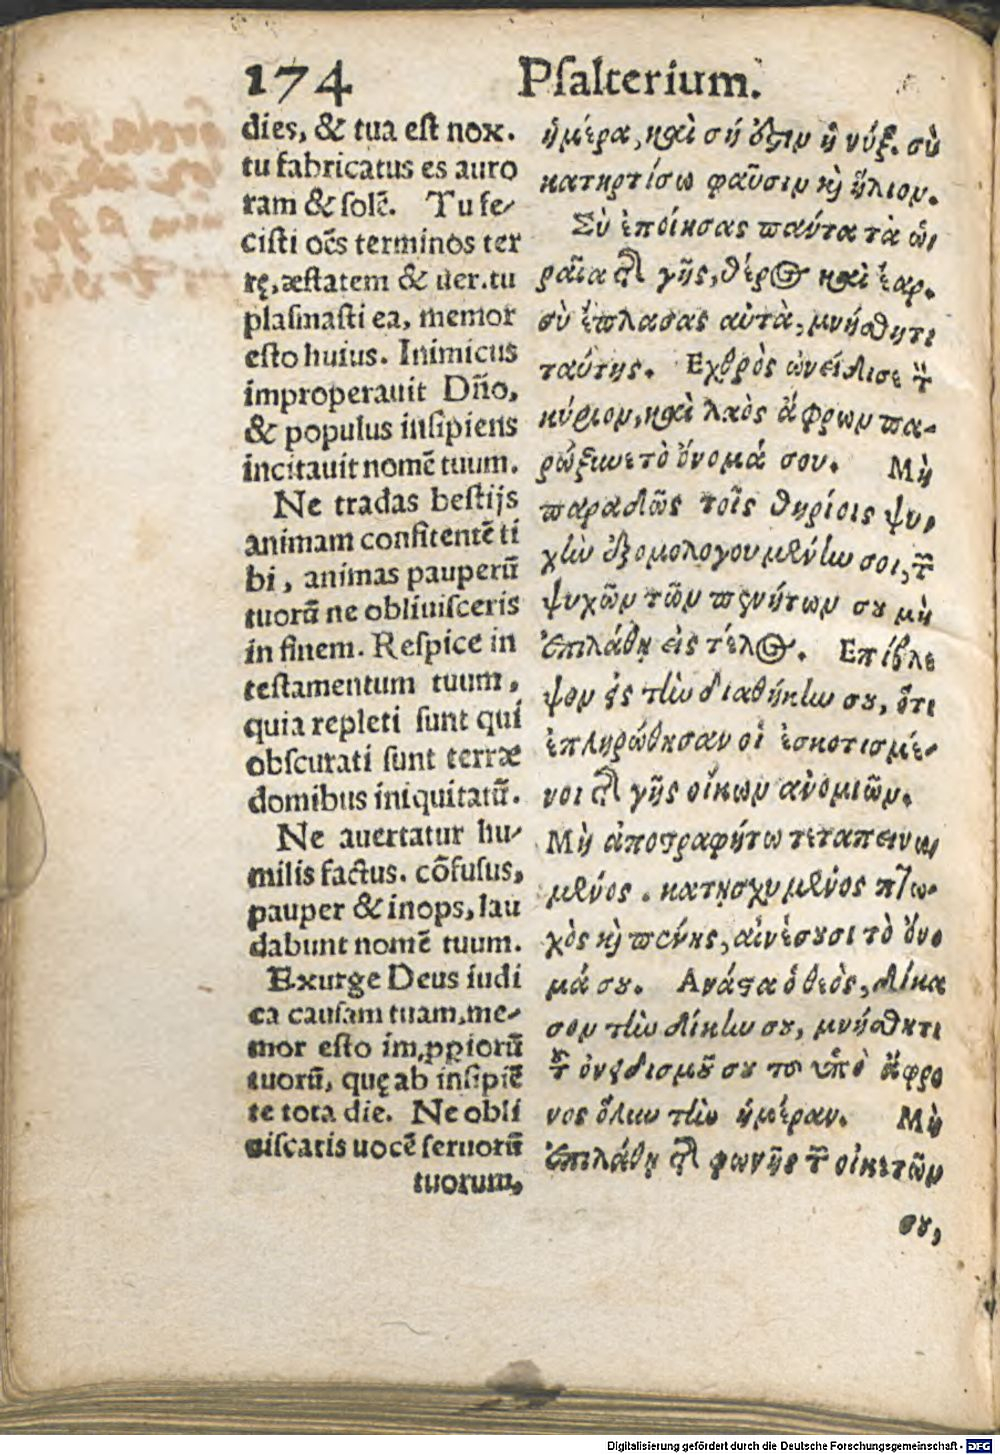 174 Psalterium.
dies, & tua est nox.
tu fabricatus es auro
ram & solē. Tu fe-
cisti oēs terminos ter
rę, æstatem & uer. tu
plasmasti ea, memor
esto huius. Inimicus
improperauit Dño,
& populus insipiens
incitauit nomē tuum.
Ne tradas bestijs
animam confitentē ti
bi, animas pauperū
tuorū ne obliuisceris
in finem. Respice in
testamentum tuum,
quia repleti sunt qui
obscurati sunt terræ
domibus iniquitatū.
Ne auertatur hu-
milis factus. cōfusus,
pauper & inops, lau
dabunt nomē tuum.
Exurge Deus iudi
ca causam tuam, me-
mor esto imꝓꝑiorū
tuorū, quę ab insipiē
te tota die. Ne obli
uiscaris uocē seruorū
tuorum,
ἡμέρα, καὶ σή ὅξιν ἡ νύξ. σὺ
κατηρτίσω φαῦσιν κỳ ἥλιον.
Σὺ ἐποίησας παύτα τὰ ὡ-
ραῖα τῆς γῆς, θέρος καὶ ἔαρ.
σὺ ἔπλασας αὐτὰ, μνήσθητι
ταύτης. Εχθρὸς ὠνείδισε τὸν
κύριον, καὶ λαὸς ἄφρων πα-
ρώξυνε τὸ ὄνομά σου. Μὴ
παραδῶς τοῖς θηρίοις ψυ-
χὴν ἐξομολογουμένην σοι, τῶν
ψυχῶν τῶν πενήτων σȣ μὴ
ἐπιλάθῃ εἰς τέλος. Επίβλε
ψον εἰς τὴν διαθήκην σȣ, ὅτι
ἐπληρώθησαν οἱ ἐσκοτισμέ-
νοι τῆς γῆς οἴκων ἀνομιῶν.
Μὴ ἀποστραφήτω τεταπεινω-
μένος. κατῃσχυμένος πτω-
χὸς κỳ πένης, αἰνέσȣσι τὸ ὄνο
μά σȣ. Ανάστα ὁ θεὸς, δίκα
σον τὴν δίκην σȣ, μνήσθητι
τῶν ὀνειδισμῶ̃ σȣ τῶν ὑπὸ ἄφρο
νος ὅλην τὴν ἡμέραν. Μὴ
ἐπιλάθῃ τῆς φωνῆς τῶν οἰκετῶν
σȣ,
Digitalisierung gefördert durch die Deutsche Forschungsgemeinschaft - DFG